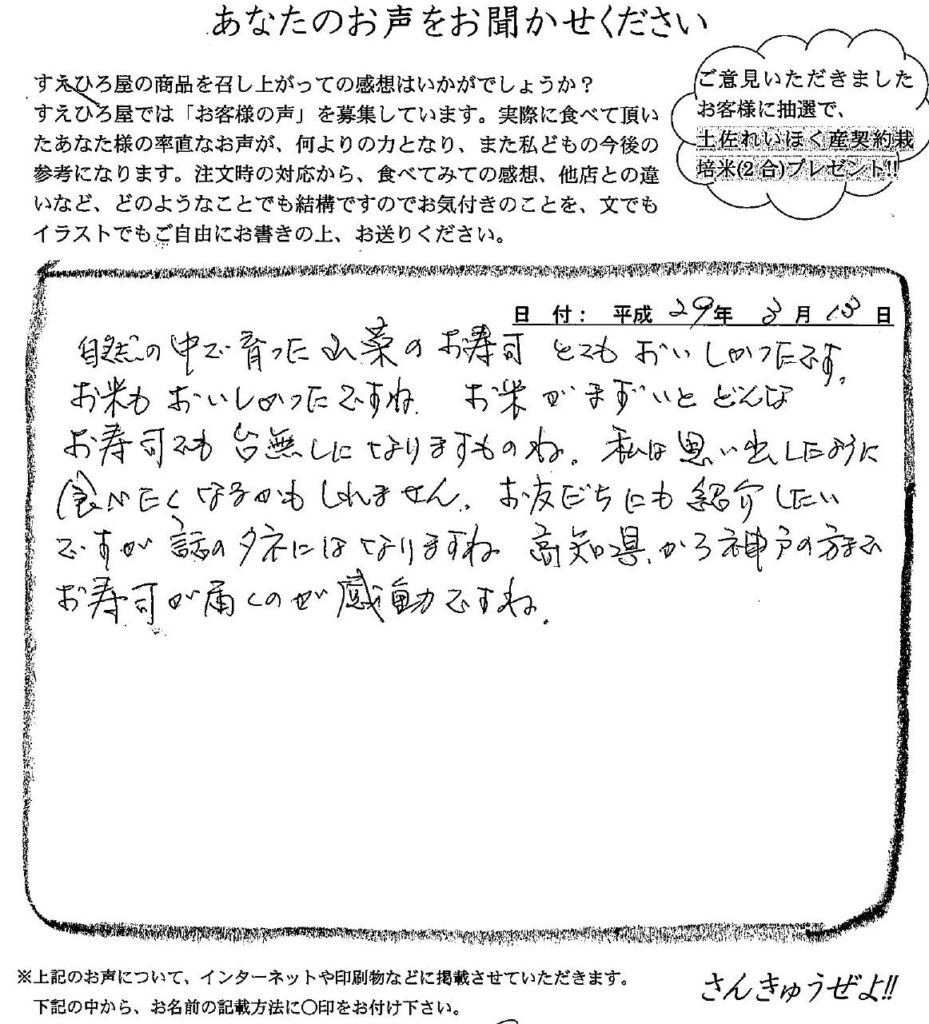 あなたのお声をお聞かせください
すえひろ屋の商品を召し上がっての感想はいかがでしょうか？
すえひろ屋では「お客様の声」を募集しています。実際に食べて頂い
たあなた様の率直なお声が、何よりの力となり、また私どもの今後の
参考になります。注文時の対応から、食べてみての感想、他店との違
いなど、どのようなことでも結構ですのでお気付きのことを、文でも
イラストでもご自由にお書きの上、お送りください。
ご意見いただきました
お客様に抽選で、
土佐れいほく産契約栽
培米(2合)プレゼント!!
日 付： 平成 29年 3月 13日
自然の中で育った山菜のお寿司 とてもおいしかったです。
お米もおいしかったですね お米がまずいとどんな
お寿司でも台無しになりますものね。私は思い出したように
食べたくなるかもしれません。お友だちにも紹介したい
ですが話のタネにはなりますね 高知県から神戸の方まで
お寿司が届くのが感動ですね。
※上記のお声について、インターネットや印刷物などに掲載させていただきます。
下記の中から、お名前の記載方法に〇印をお付け下さい。
さんきゅうぜよ!!